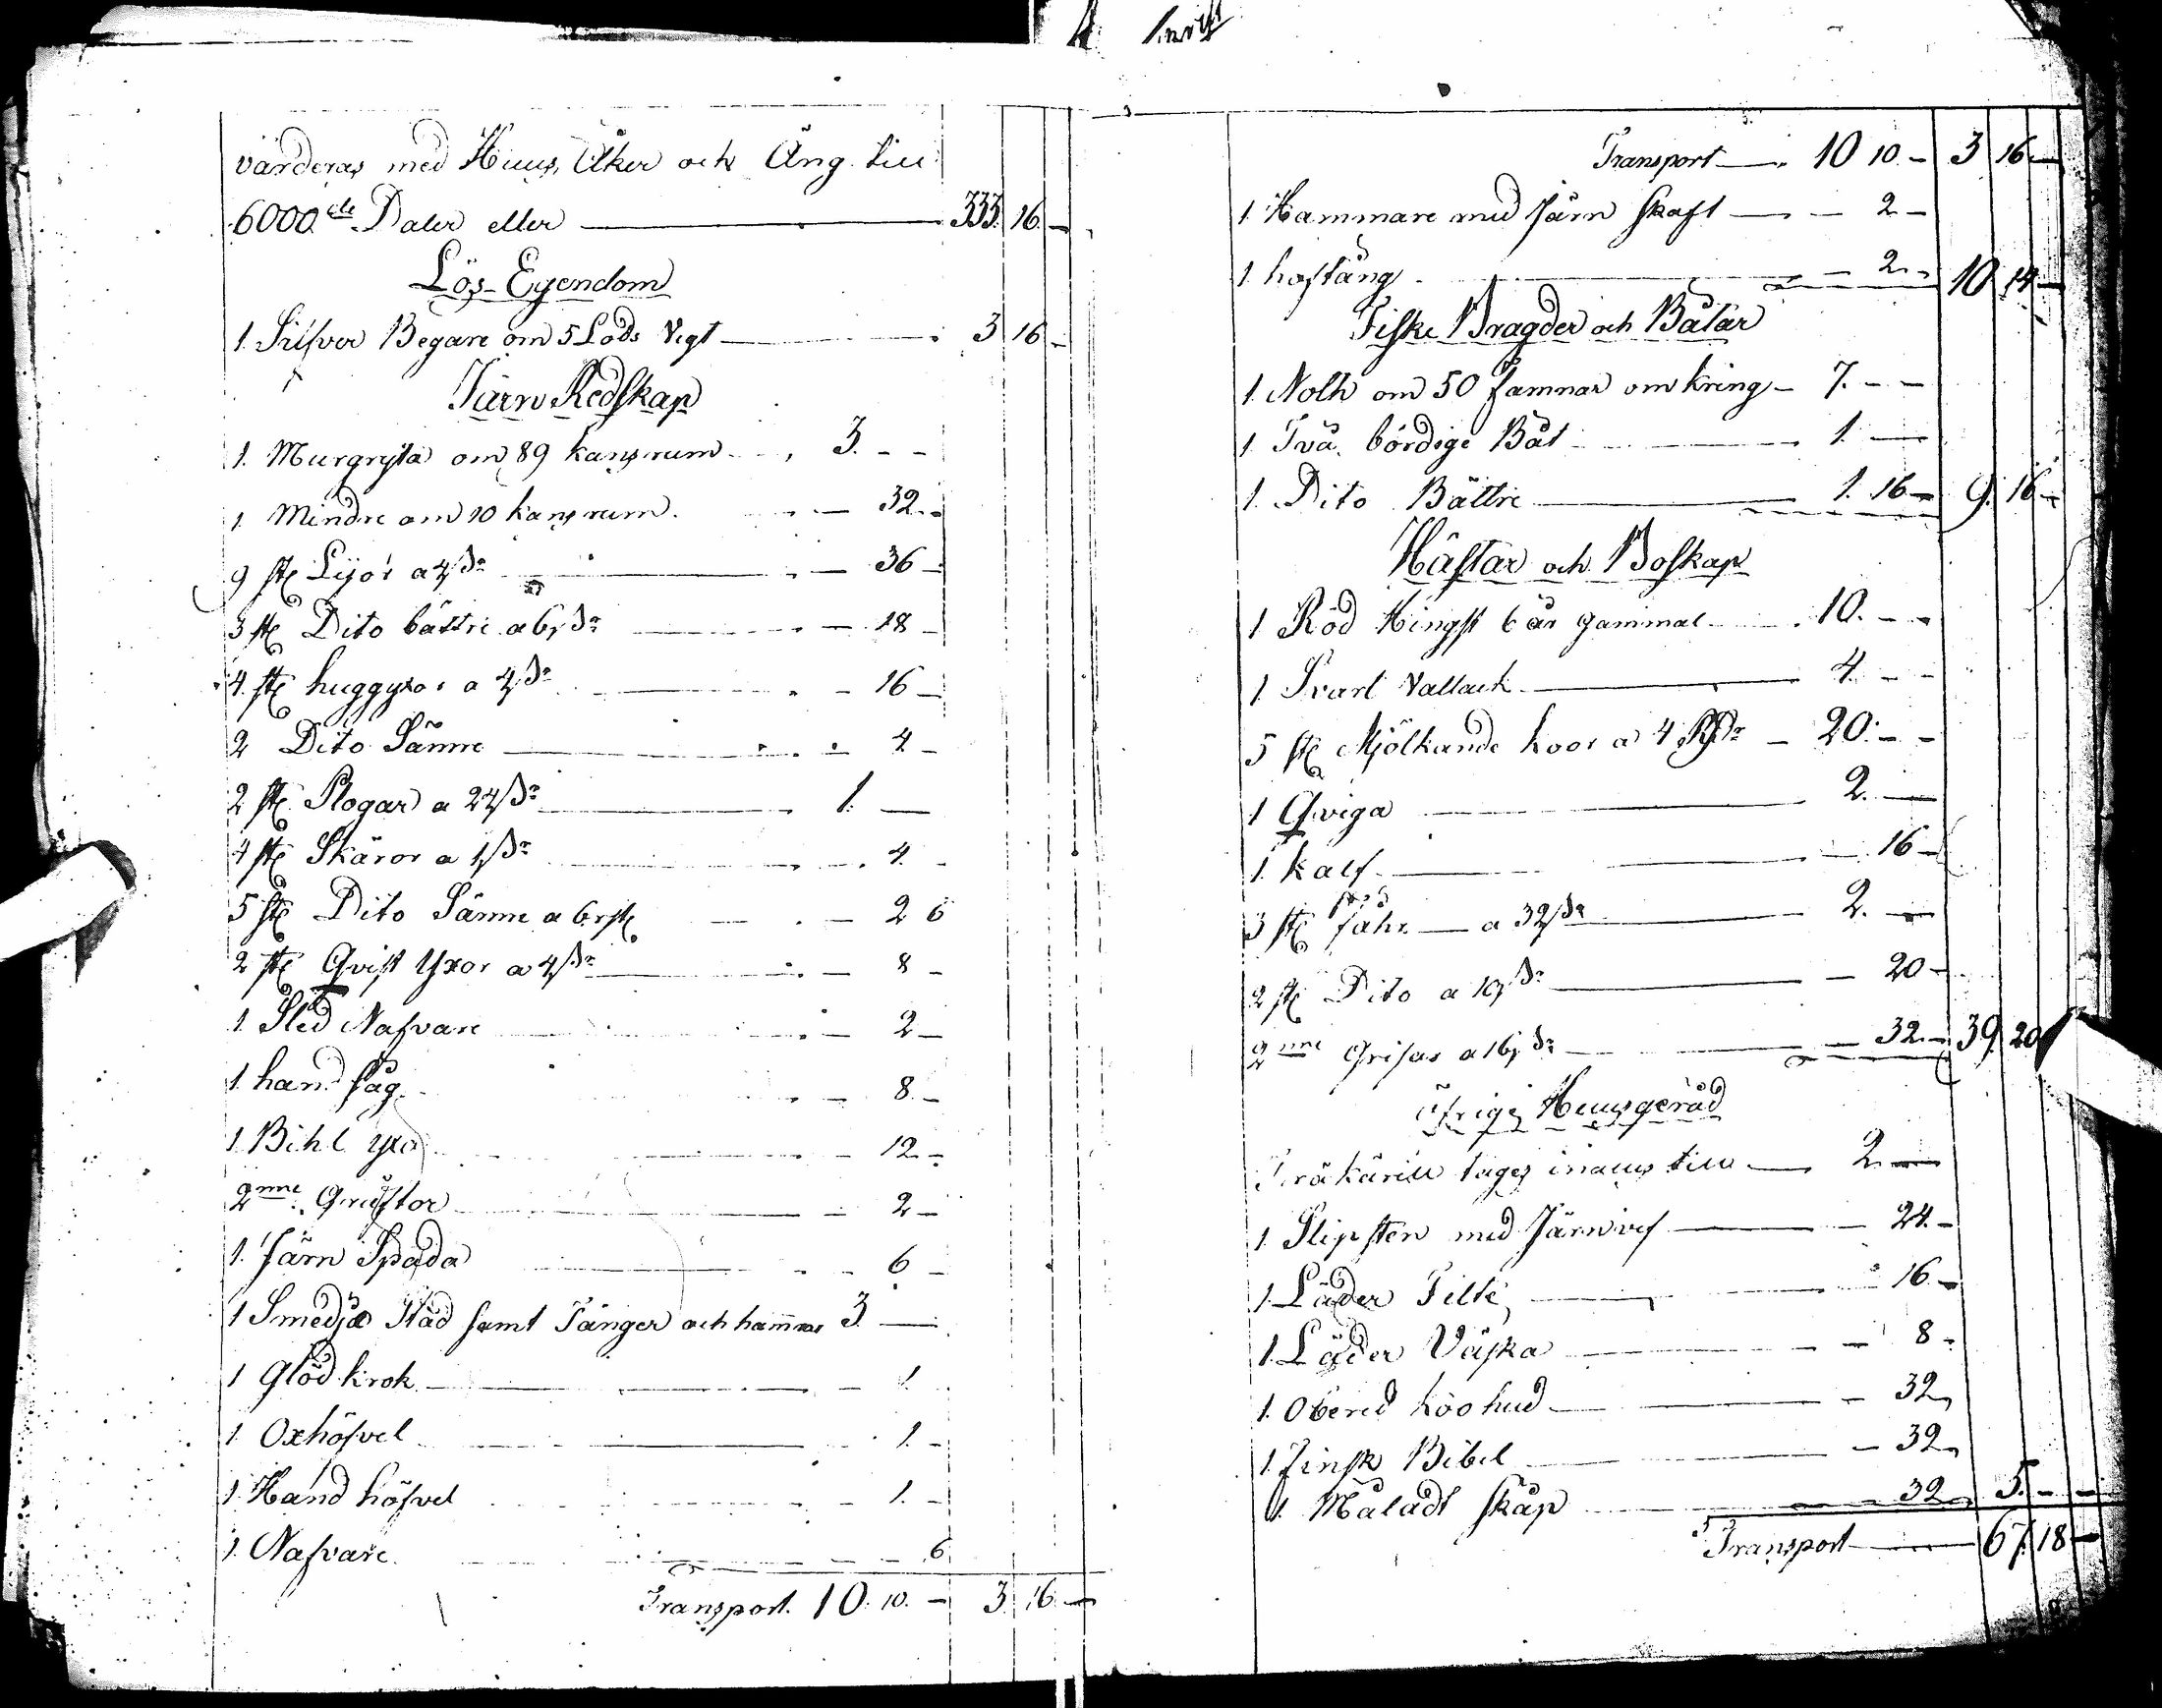 värderas med Huus, Åker och Äng till
6000 de Daler eller — 333. 16. —
Lös-Egendom
1. Silfver Begare om 5 Lods Vigt — 3 16 —
Järn Redskap
1. Murgryta om 89 kansrum — 3. - -
1. Mindre om 10 kansrum. — 32. -
9 st Lijor a 4 sr — 36 -
3 st Dito bättre a 6 sr — 18 -
4. st huggyxor a 4 sr — 16 -
2 Dito Sämre — 4 -
2 st Plogar a 24 sr — 1. —
4 st Skäror a 1 sr — 4. -
5 st Dito Sämre a 6 rst — 2 6
2 st Qvist Yxor a 4 sr — 8 -
1. Sled Nafvare — 2 -
1. hand såg — 8. -
1. Bihl yxa — 12 -
2 nne — 2 -
1. Järn Spada — 6 -
1 Smedje Städ samt Tänger och hamrar 3. —
1 Glöd krok — 1.
1. Oxhöfvel — 1. -
1. Hand höfvel — 1. -
1. Nafvare — 6
Transport. 10. 10. — 3. 16. —
Transport — 10 10. - 3 16 —
1. Hammare med Järn skaft — 2 -
1. hoftång — 2. - 10 14 —
Fiske Bragder och Båtar
1. Noth om 50 famnar omkring — 7. - -
1 Två bördige Båt — 1. —
1. Dito Bättre — 1. 16 - 9. 16 -
Hästar och Boskap
1 Röd Hingst 6 år gammal — 10. - -
1 Svart Vallack — 4. - -
5 st Mjölkande koor a 4 Rdr — 20. - -
1 Qviga — 2. —
1. kalf — 16 -
3 st fåhr — a 32 sr — 2. —
2 st Dito a 10 sr — 20 -
2 nne Grisar a 16 sr — 32. - 39. 20
öfrige Huusgeråd
Träkärill tages inalles till — 2. —
1. Slipsten med Järnvef — 24. -
1. Läder Filte — 16. -
1. Läder Väska — 8 -
1. Obered koohud — 32 -
1. Finsk Bibel — 32 -
1. Måladt skåp — 32 - 5. - -
Transport — 67. 18 —